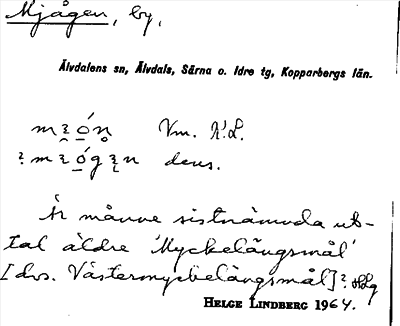 Mjågen, by,
Älvdalens sn, Älvdals, Särna o. Idre tg, Kopparbergs län.
Vm. K.L.
dens.
Är månne sistnämnda ut-
tal äldre 'Myckelängsmål'
[dvs. Västermyckelängsmål]? HLg
HELGE LINDBERG 1964.